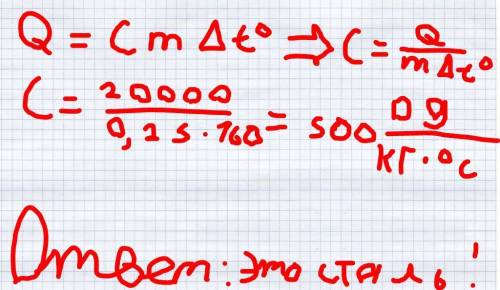 Q = C m Δt° ⇒ C = Q / m Δt°
C = 20000 / 0,25·160 = 500 Дж / кг·°C
Ответ: это сталь!